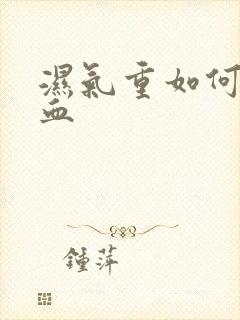 濕氣重如何
血
鍾萍